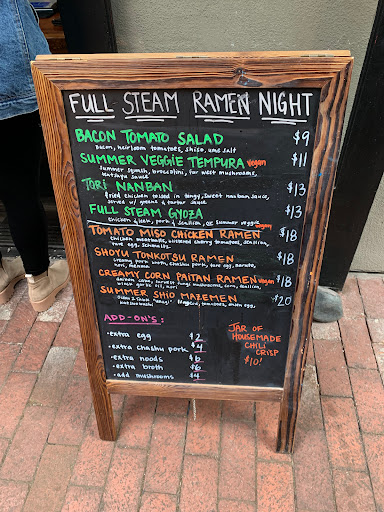 FULL STEAM RAMEN NIGHT
BACON TOMATO SALAD $9
bacon, heirloom tomatoes, shiso, ume salt
SUMMER VEGGIE TEMPURA vegan $11
summer squash, broccolini, far west mushrooms,
tentsuyu sauce
TORI NANBAN $13
fried chicken tossed in tangy, sweet nanban sauce,
served w/ greens & tartar sauce
FULL STEAM GYOZA $13
chicken & leek, pork & scallion, or summer veggie vegan
TOMATO MISO CHICKEN RAMEN $18
chicken meatballs, blistered cherry tomatoes, scallion,
SHOYU TONKOTSU RAMEN $18
creamy pork broth, chashu pork, tare egg, naruto,
nori, menma
CREAMY CORN PAITAN RAMEN vegan $18
SUMMER SHIO MAZEMEN $20
tomatoes, onsen egg,
ADD-ON'S:
•extra egg $2
•extra chashu pork $4
•extra noods $6
•extra broth $6
•add mushrooms $4
JAR OF
HOUSEMADE
CHILI
CRISP
$10!